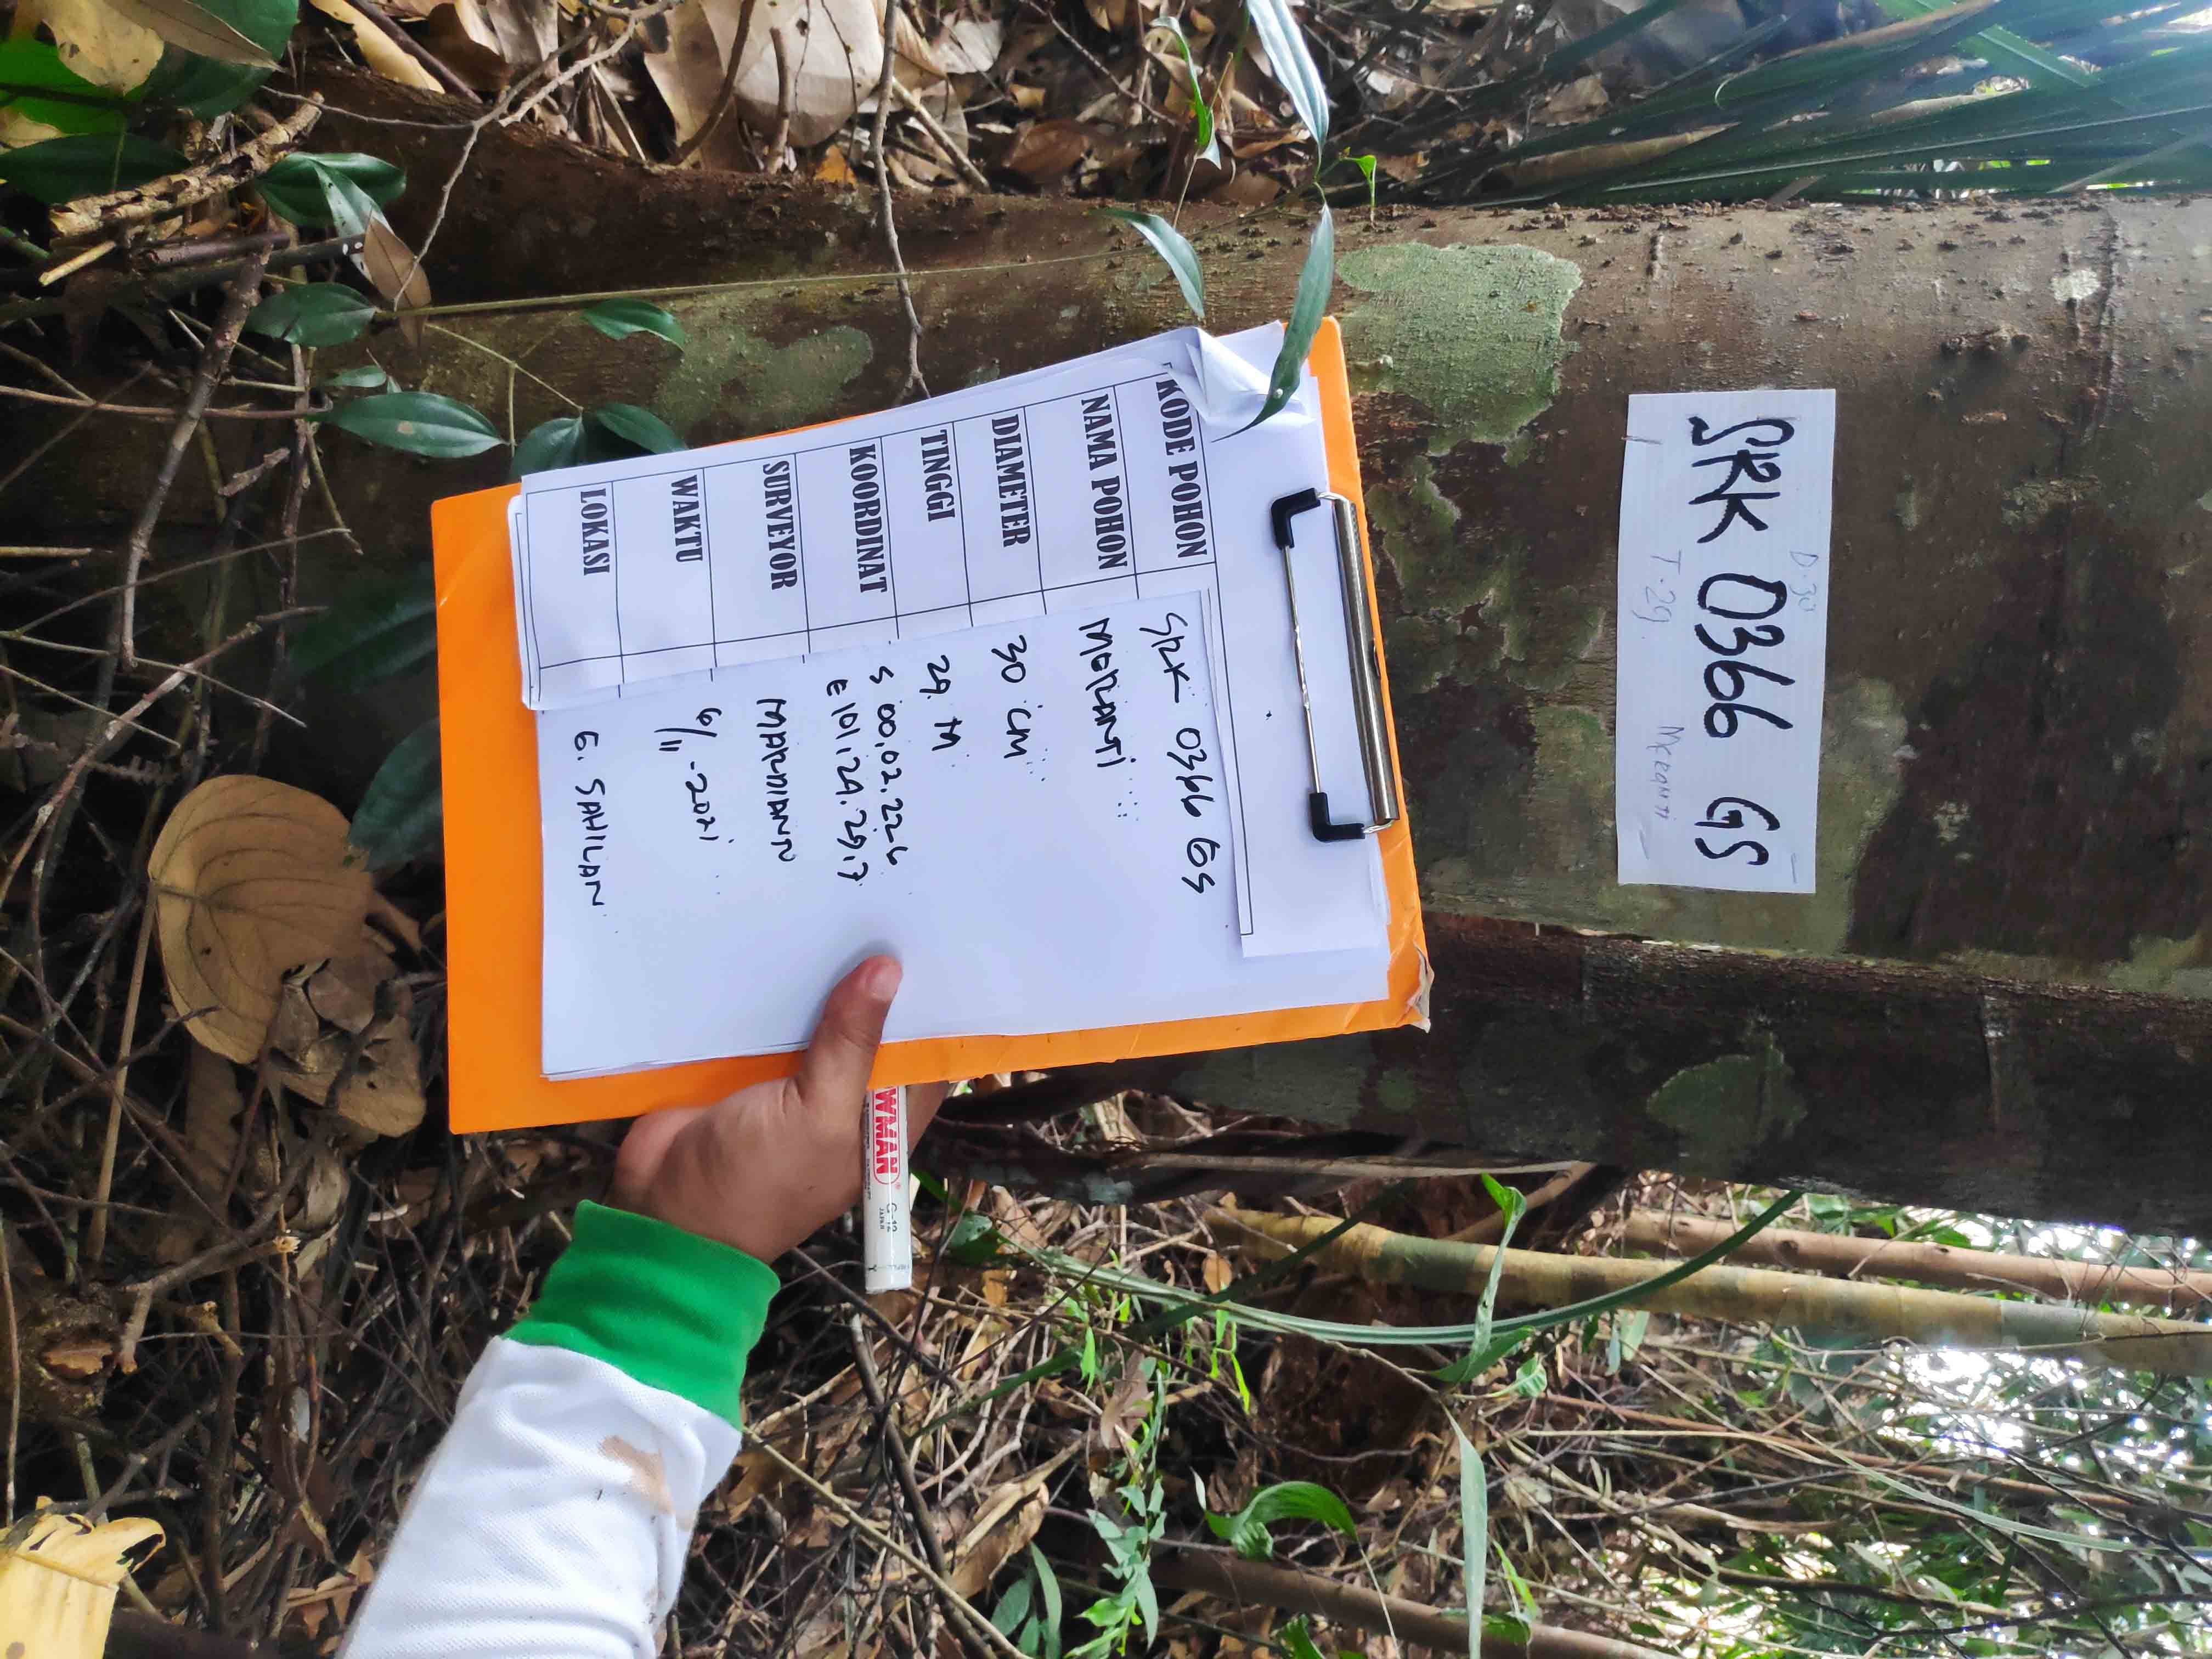 D.30
SRK 0366 GS
T.29 Meranti
KODE POHON SRK 0366 GS
NAMA POHON MERANTI
DIAMETER 30 CM
TINGGI 29 M
KOORDINAT S 00.02.22.6
E 101.29.29,7
SURVEYOR MARDIANTO
WAKTU 6/11-2021
LOKASI G. SAHILAN
WMAN G-12
JAPAN